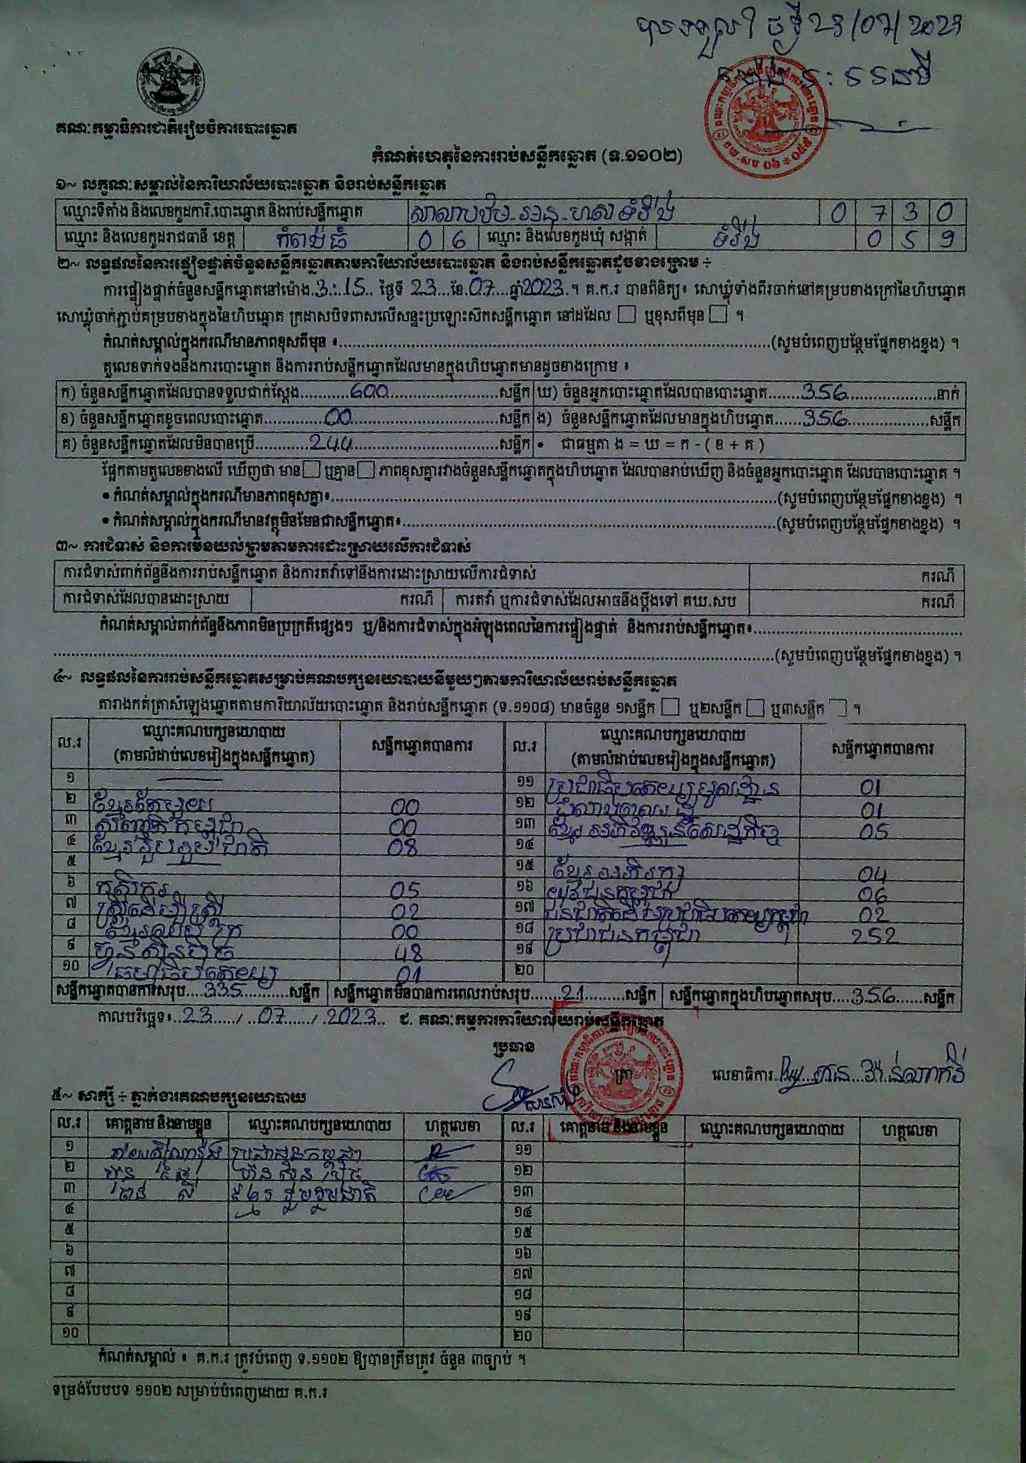 បានទទួល ថ្ងៃទី 23/07/2023
គណៈកម្មាធិការជាតិរៀបចំការបោះឆ្នោត
កំណត់ហេតុនៃការរាប់សន្លឹកឆ្នោត (ទ.១១០២)
១~ លក្ខណៈសម្គាល់នៃការិយាល័យបោះឆ្នោត និងរាប់សន្លឹកឆ្នោត
ឈ្មោះទីតាំង និងលេខកូដការិ.បោះឆ្នោត និងរាប់សន្លឹកឆ្នោត 0 7 3 0
ឈ្មោះ និងលេខកូដរាជធានី ខេត្ត កំពង់ធំ 0 6 ឈ្មោះ និងលេខកូដឃុំ សង្កាត់ ទំរីង 0 5 9
២~ លទ្ធផលនៃការផ្ទៀងផ្ទាត់ចំនួនសន្លឹកឆ្នោតតាមការិយាល័យបោះឆ្នោត និងរាប់សន្លឹកឆ្នោតដូចខាងក្រោម ÷
ការផ្ទៀងផ្ទាត់ចំនួនសន្លឹកឆ្នោតនៅម៉ោង 3:15 ថ្ងៃទី 23 ខែ 07 ឆ្នាំ 2023 ។ គ.ក.រ បានពិនិត្យ៖ សោឃ្លុំទាំងពីរចាក់នៅគម្របខាងក្រៅនៃហិបឆ្នោត
សោឃ្លុំចាក់ភ្ជាប់គម្របខាងក្នុងនៃហិបឆ្នោត ក្រដាសបិទពាសលើសន្ទះប្រឡោះសឹកសន្លឹកឆ្នោត នៅដដែល ☐ ឬខុសពីមុន ☐ ។
កំណត់សម្គាល់ក្នុងករណីមានភាពខុសពីមុន ៖........(សូមបំពេញបន្ថែមផ្នែកខាងខ្នង) ។
តួលេខទាក់ទងនឹងការបោះឆ្នោត និងការរាប់សន្លឹកឆ្នោតដែលមានក្នុងហិបឆ្នោតមានដូចខាងក្រោម ៖
ក) ចំនួនសន្លឹកឆ្នោតដែលបានទទួលជាក់ស្តែង 600 សន្លឹក ឃ) ចំនួនអ្នកបោះឆ្នោតដែលបានបោះឆ្នោត 356 នាក់
ខ) ចំនួនសន្លឹកឆ្នោតខូចពេលបោះឆ្នោត 00 សន្លឹក ង) ចំនួនសន្លឹកឆ្នោតដែលមានក្នុងហិបឆ្នោត 356 សន្លឹក
គ) ចំនួនសន្លឹកឆ្នោតដែលមិនបានប្រើ 244 សន្លឹក • ជាធម្មតា ង = ឃ = ក - ( ខ + គ )
ផ្អែកតាមតួលេខខាងលើ ឃើញថា មាន ☐ ឬគ្មាន ☐ ភាពខុសគ្នារវាងចំនួនសន្លឹកឆ្នោតក្នុងហិបឆ្នោត ដែលបានរាប់ឃើញ និងចំនួនអ្នកបោះឆ្នោត ដែលបានបោះឆ្នោត ។
• កំណត់សម្គាល់ក្នុងករណីមានភាពខុសគ្នា៖........(សូមបំពេញបន្ថែមផ្នែកខាងខ្នង) ។
• កំណត់សម្គាល់ក្នុងករណីមានវត្ថុមិនមែនជាសន្លឹកឆ្នោត៖........(សូមបំពេញបន្ថែមផ្នែកខាងខ្នង) ។
៣~ ការជំទាស់ និងការមិនយល់ព្រមតាមការដោះស្រាយលើការជំទាស់
ការជំទាស់ពាក់ព័ន្ធនឹងការរាប់សន្លឹកឆ្នោត និងការតវ៉ាទៅនឹងការដោះស្រាយលើការជំទាស់ ករណី
ការជំទាស់ដែលបានដោះស្រាយ ករណី ការតវ៉ា ឬការជំទាស់ដែលអាចនឹងប្តឹងទៅ គឃ.សប ករណី
កំណត់សម្គាល់ពាក់ព័ន្ធនឹងភាពមិនប្រក្រតីផ្សេងៗ ឬ/និងការជំទាស់ក្នុងអំឡុងពេលនៃការផ្ទៀងផ្ទាត់ និងការរាប់សន្លឹកឆ្នោត៖........
........(សូមបំពេញបន្ថែមផ្នែកខាងខ្នង) ។
៤~ លទ្ធផលនៃការរាប់សន្លឹកឆ្នោតសម្រាប់គណបក្សនយោបាយនីមួយៗតាមការិយាល័យរាប់សន្លឹកឆ្នោត
តារាងកត់ត្រាសំឡេងឆ្នោតតាមការិយាល័យបោះឆ្នោត និងរាប់សន្លឹកឆ្នោត (ទ.១១០៨) មានចំនួន ១សន្លឹក ☐ ឬ២សន្លឹក ☐ ឬ៣សន្លឹក ☐ ។
ល.រ ឈ្មោះគណបក្សនយោបាយ (តាមលំដាប់លេខរៀងក្នុងសន្លឹកឆ្នោត) សន្លឹកឆ្នោតបានការ ល.រ ឈ្មោះគណបក្សនយោបាយ (តាមលំដាប់លេខរៀងក្នុងសន្លឹកឆ្នោត) សន្លឹកឆ្នោតបានការ
១ ១១ ប្រជាធិបតេយ្យមូលដ្ឋាន 01
២ ខ្មែរតែមួយ 00 ១២ 01
៣ 00 ១៣ ខ្មែរអភិវឌ្ឍន៍សេដ្ឋកិច្ច 05
៤ ខ្មែររួបរួមជាតិ 08 ១៤
៥ ១៥ ខ្មែរអភិរក្ស 04
៦ កសិករ 05 ១៦ យុវជនកម្ពុជា 06
៧ ស្ត្រីដើម្បីស្ត្រី 02 ១៧ 02
៨ 00 ១៨ ប្រជាជនកម្ពុជា 252
៩ ហ៊្វុនស៊ិនប៉ិច 48 ១៩
១០ ធម្មាធិបតេយ្យ 01 ២០
សន្លឹកឆ្នោតបានការសរុប 335 សន្លឹក សន្លឹកឆ្នោតមិនបានការពេលរាប់សរុប 21 សន្លឹក សន្លឹកឆ្នោតក្នុងហិបឆ្នោតសរុប 356 សន្លឹក
កាលបរិច្ឆេទ៖ 23 / 07 / 2023 ជ. គណៈកម្មការការិយាល័យរាប់សន្លឹកឆ្នោត
ប្រធាន ត្រា លេខាធិការ
៥~ សាក្សី ÷ ភ្នាក់ងារគណបក្សនយោបាយ
ល.រ គោត្តនាម និងនាមខ្លួន ឈ្មោះគណបក្សនយោបាយ ហត្ថលេខា ល.រ គោត្តនាម និងនាមខ្លួន ឈ្មោះគណបក្សនយោបាយ ហត្ថលេខា
១ ប្រជាជនកម្ពុជា ១១
២ ហ៊្វុនស៊ិនប៉ិច ១២
៣ ខ្មែររួបរួមជាតិ ១៣
៤ ១៤
៥ ១៥
៦ ១៦
៧ ១៧
៨ ១៨
៩ ១៩
១០ ២០
កំណត់សម្គាល់ ៖ គ.ក.រ ត្រូវបំពេញ ទ.១១០២ ឱ្យបានត្រឹមត្រូវ ចំនួន ៣ច្បាប់ ។
ទម្រង់បែបបទ ១១០២ សម្រាប់បំពេញដោយ គ.ក.រ